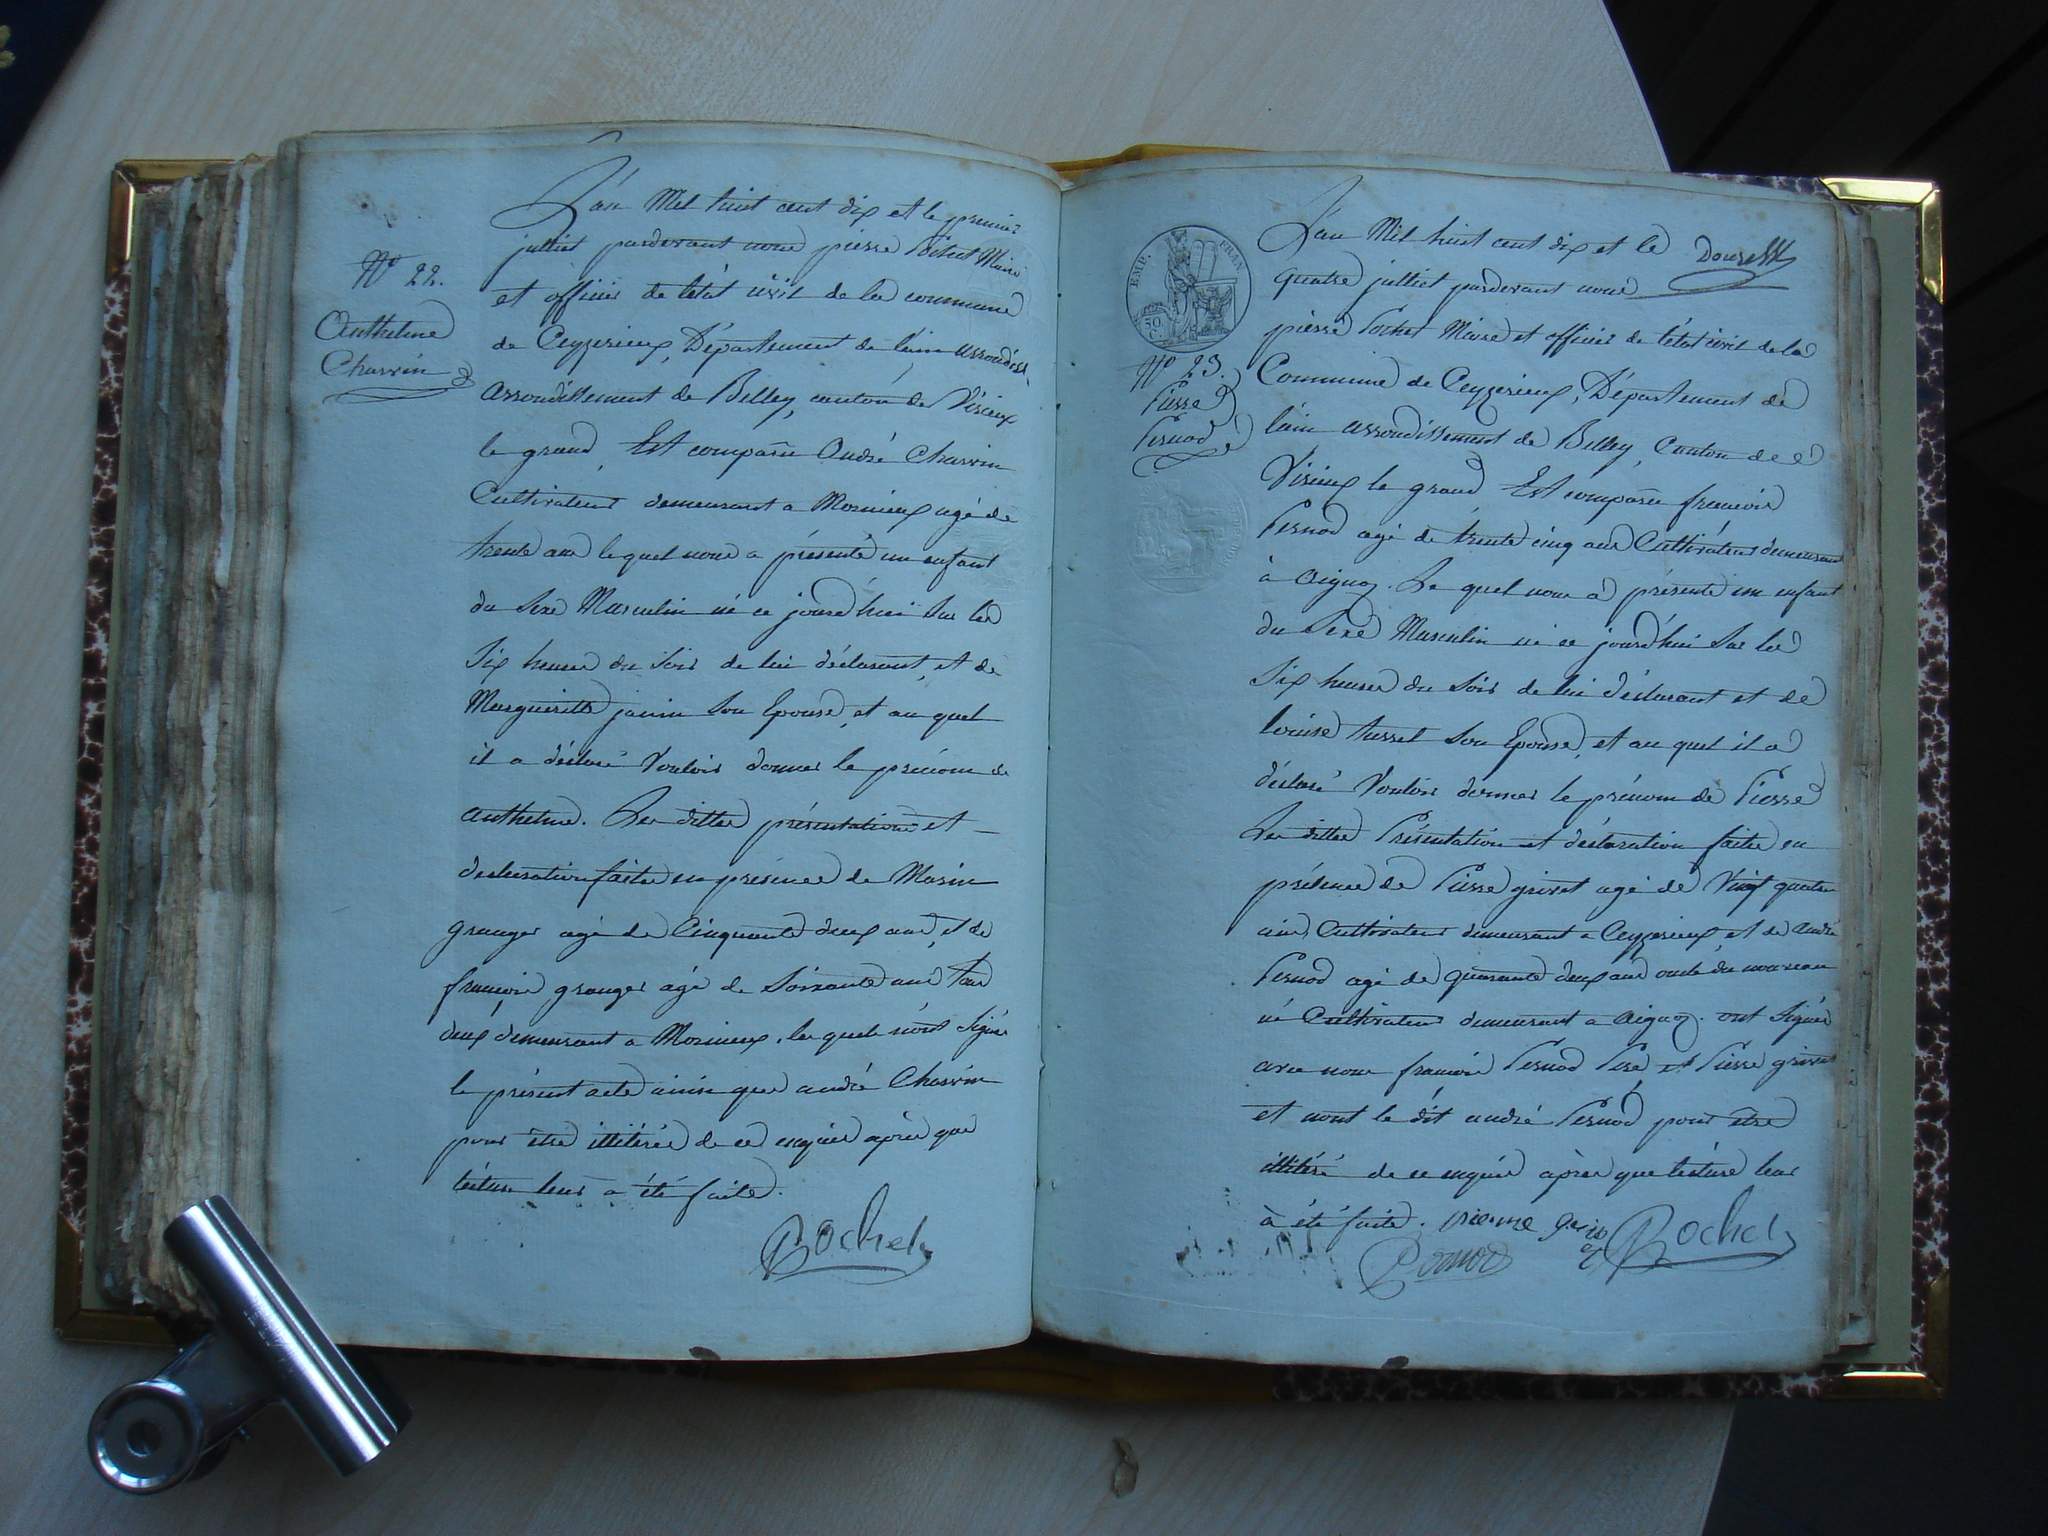 L'an Mil huit cent dix et le premier
julliet pardevant nous pierre Pochet Maire
et officier de l'état civil de la commune
de Ceyzerieux, Département de l'ain
arrondissement de Belley, canton de Virieux
le grand, Est comparu André Charvin
Cultivateur demeurant a Mornieux agé de
trente ans lequel nous a présenté un enfant
du Sexe Masculin né ce jourd'hui Sur les
Six heures du Soir de lui déclarant, et de
Margueritte janin Son Epouse, et au quel
il a déclaré Vouloir donner le prénom de
anthelme. Les dittes présentations et
declaration faite en présence de Marin
granger agé de Cinquante deux ans, et de
françois granger agé de Soixante ans tous
deux demeurant a Mornieux, les quels n'ont Signé
le présent acte ainsi que andré Charvin
pour être illitérés de ce enquis après que
lecture leur a été faite.
Pochet
N° 22.
Anthelme
Charvin
EMP. FRAN.
50 C.
N° 23.
Pierre
Pernod
L'an Mil huit cent dix et le
quatre julliet pardevant nous
pierre Pochet Maire et officier de l'état civil de la
Commune de Ceyzerieux, Département de
l'ain arrondissement de Belley, Canton de
Virieux le grand Est comparu francois
Pernod agé de trente cinq ans Cultivateur demeurant
à Aignoz. Le quel nous a présenté un enfant
du Sexe Masculin né ce jourd'hui Sur les
Six heures du Soir de lui déclarant et de
louise Son Epouse, et au quel il a
déclaré Vouloir donner le prénom de Pierre
Les dittes Présentation et déclaration faites en
présence de Pierre grivet agé de Vingt quatre
ans, Cultivateur demeurant a Ceyzerieux, et de André
Pernod agé de quarante deux ans oncle du nouveau
né Cultivateur demeurant a Aignoz. ont Signés
avec nous francois Pernod Père et Pierre grivet
et nont le dit andré Pernod pour etre
illitéré de ce enquis après que lecture leur
à été faite. Pochet
Pernod